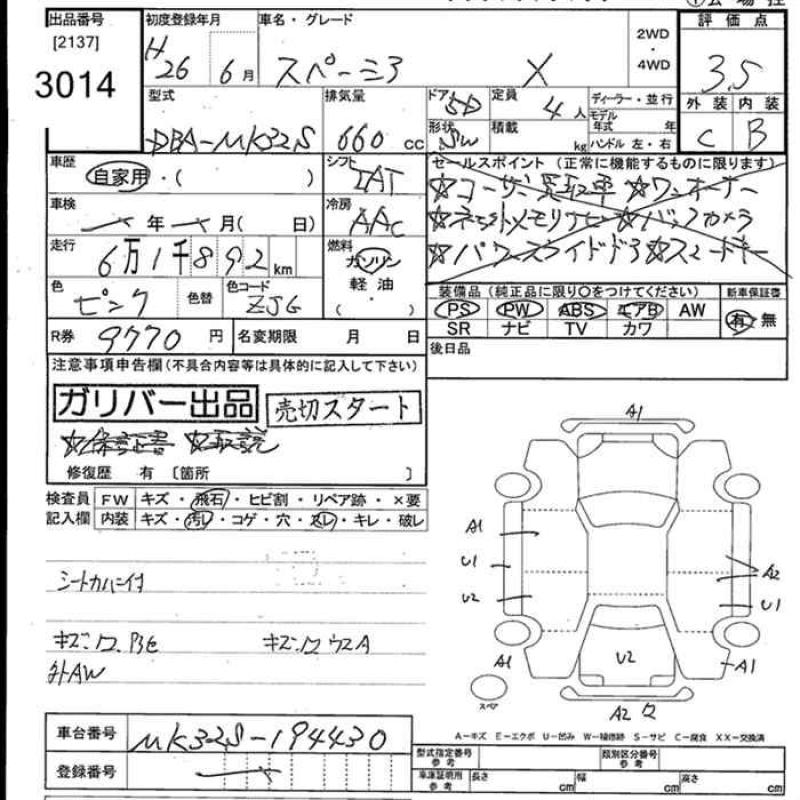 出品番号
[2137]
3014
初度登録年月
H26 6月
車名・グレード
スペーシア
X
2WD
・
4WD
評価点
3.5
外装 内装
C B
型式
DBA-MK32S
排気量
660 cc
ドア
5D
定員
4人
ディーラー・並行
形状
SW
積載
kg
モデル年式 年
ハンドル 左・右
車歴
自家用・( )
シフト
IAT
車検
年 月( 日)
冷房
AAC
走行
6万1千892km
燃料
ガソリン
軽油
( )
色
ピンク
色替
色コード
ZJG
セールスポイント(正常に機能するものに限ります)
☆ユーザー買取車 ☆ワンオーナー
☆ネット メモリナビ ☆バックカメラ
☆パワースライドドア ☆スマートキー
装備品(純正品に限り○をつけてください)
新車保証書
PS PW ABS エアB AW
SR ナビ TV カワ
有・無
R券 9770円
名変期限 月 日
後日品
注意事項申告欄(不具合内容等は具体的に記入して下さい)
ガリバー出品
売切スタート
☆保証書 ☆取説
修復歴 有〔箇所 〕
検査員記入欄
FW キズ・飛石・ヒビ割・リペア跡・×要
内装 キズ・汚レ・コゲ・穴・スレ・キレ・破レ
シートカバー付
外AW
A1
A1
U1
U2
A1
A2
U1
A1
U2
A2
スペア
A-キズ E-エクボ U-凹み W-補修跡 S-サビ C-腐食 XX-交換済
車台番号
MK32S-194430
登録番号
型式指定番号
参考
類別区分番号
参考
車庫証明用
参考
長さ cm 幅 cm 高さ cm